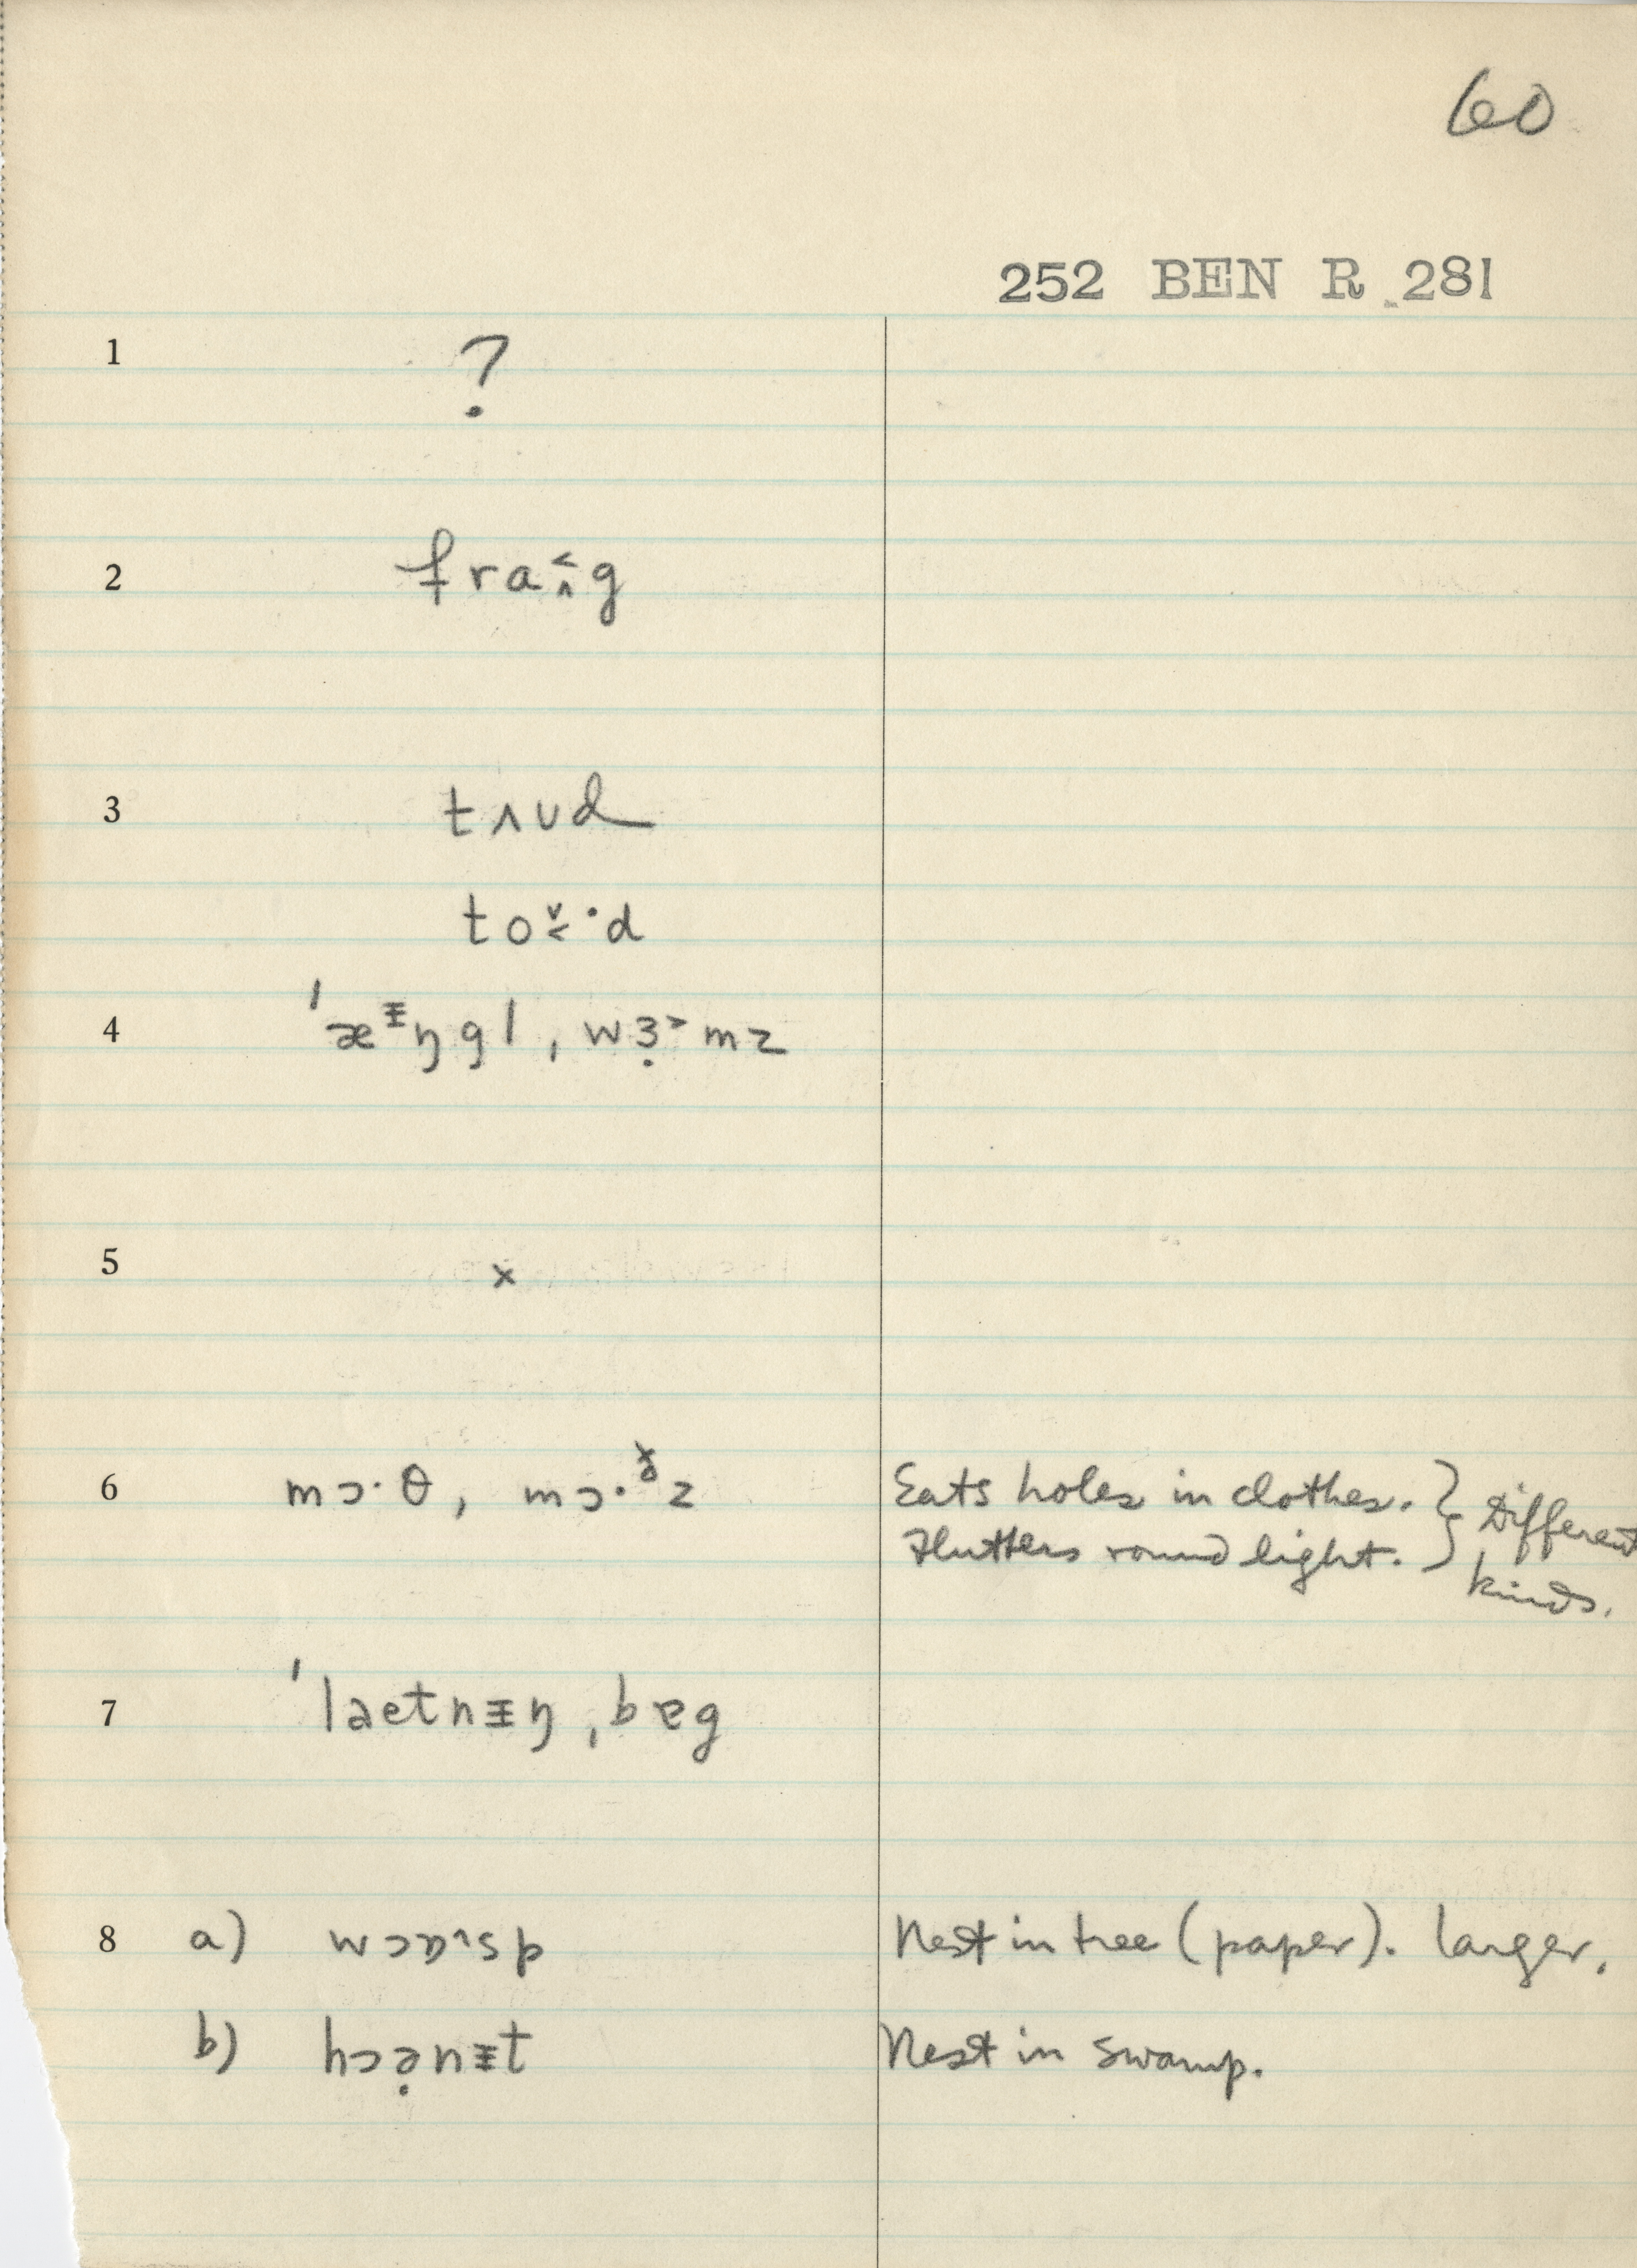 60
252 BEN R 281
1 ?
2 fraʌ̯˂g
3 tʌʊd
toˇ˂·d
4 ˈæᵻŋgl, wɜ̣˃mz
5 x
6 mɔ·θ, mɔ·ᵟz Eats holes in clothes. } Different
Flutters round light. } kinds.
7 ˈlaetnᵻŋ, bɐg
8 a) wɔɒ˞sp Nest in tree (paper). Larger.
b) hɔə̣nᵻt Nest in swamp.